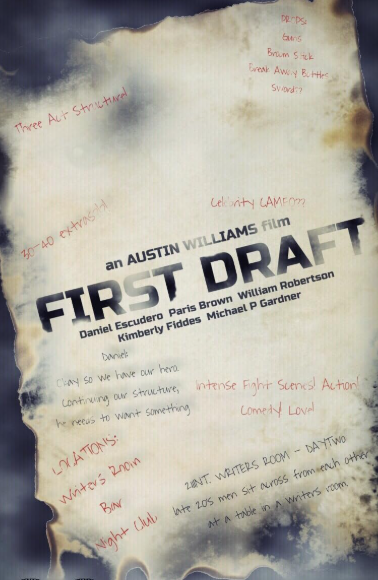 PROPS:
Guns
Broom Stick
Break Away Bottles
Sword??
Three Act Structure!
30-40 extras??
Celebrity CAMEO???
an AUSTIN WILLIAMS film
FIRST DRAFT
Daniel Escudero Paris Brown William Robertson
Kimberly Fiddes Michael P Gardner
Daniel
Okay so we have our hero.
Continuing our structure,
he needs to want something
Intense Fight Scenes! Action!
Comedy! Love!
LOCATIONS:
Writer's Room
Bar
Night Club
INT. WRITERS ROOM - DAYTWO
late 20s men sit across from each other
at a table in a writers room.